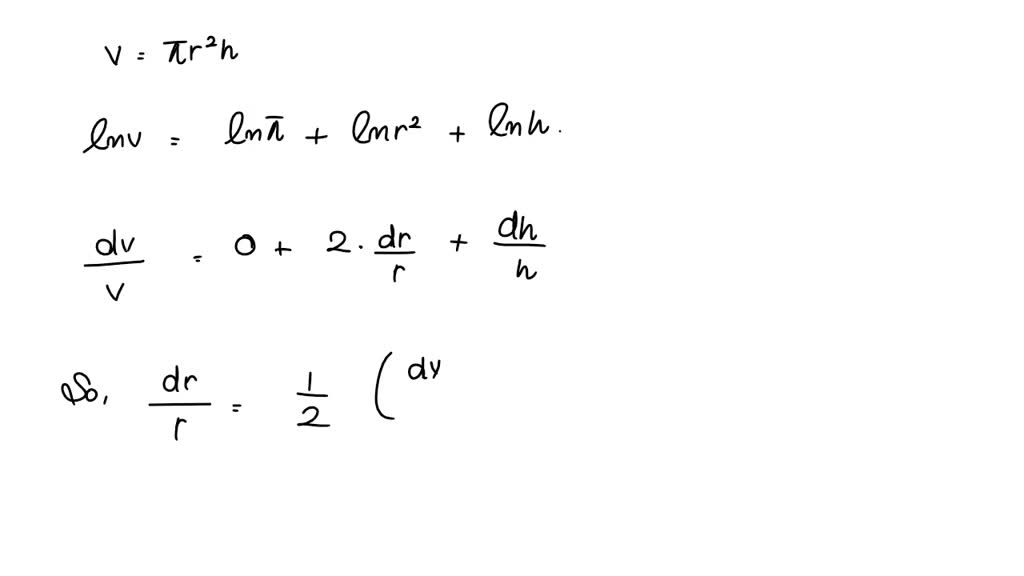 v = πr²h
lnv = lnπ + lnr² + lnh.
dv/v = 0 + 2. dr/r + dh/h
So, dr/r = 1/2 (dv